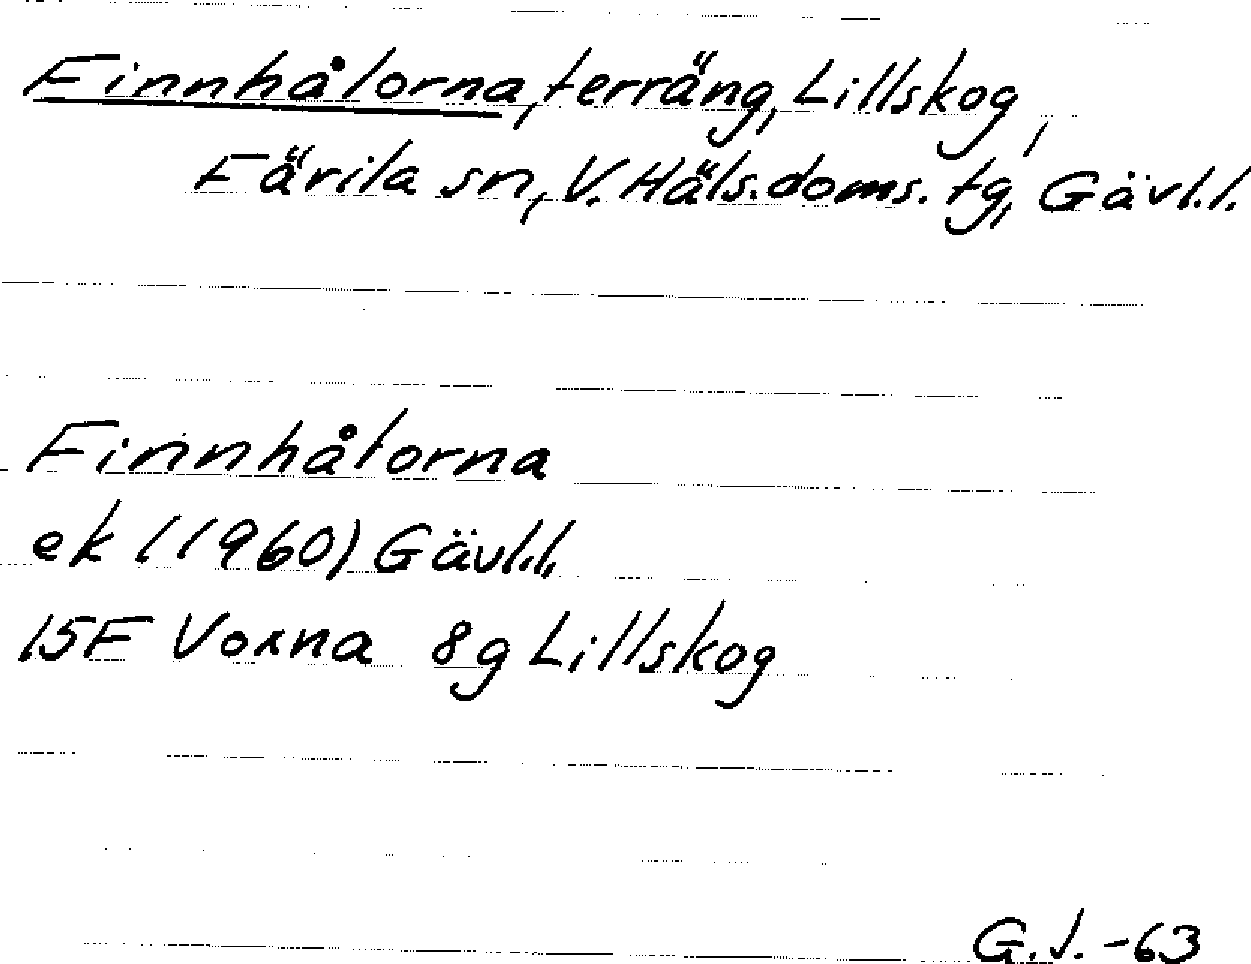 Finnhålorna, terräng, Lillskog,
Färila sn, V. Häls. doms. tg, Gävl.l.
Finnhålorna
ek (1960) Gävl.l.
15F Voxna 8g Lillskog
G.J. -63